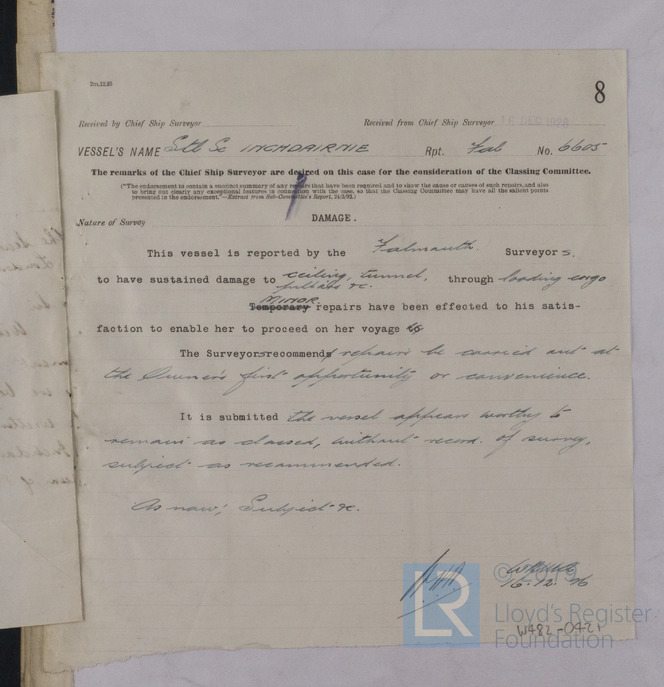 8
Received by Chief Ship Surveyor
Received from Chief Ship Surveyor
VESSEL'S NAME Stl Sc INCHDAIRNIE Rpt. Fal No. 6605
The remarks of the Chief Ship Surveyor are desired on this case for the consideration of the Classing Committee.
("The endorsement to contain a succinct summary of any repairs that have been required and to show the cause or causes of such repairs, and also
to bring out clearly any exceptional features in connection with the case, so that the Classing Committee may have all the salient points
presented in the endorsement."—Extract from Sub-Committee's Report, 24/2/93.)
Nature of Survey DAMAGE.
This vessel is reported by the Falmouth Surveyors.
to have sustained damage to ceiling, tunnel, through loading cargo
pillars &c.
MINOR
Temporary repairs have been effected to his satis-
faction to enable her to proceed on her voyage to
The Surveyors recommends repairs be carried out at
the Owner's first opportunity or convenience.
It is submitted the vessel appears worthy to
remain as classed, without record of survey,
subject as recommended.
As now; Subject &c.
16.12.26
© 2019
LR
Lloyd's Register
Foundation
W482-0421